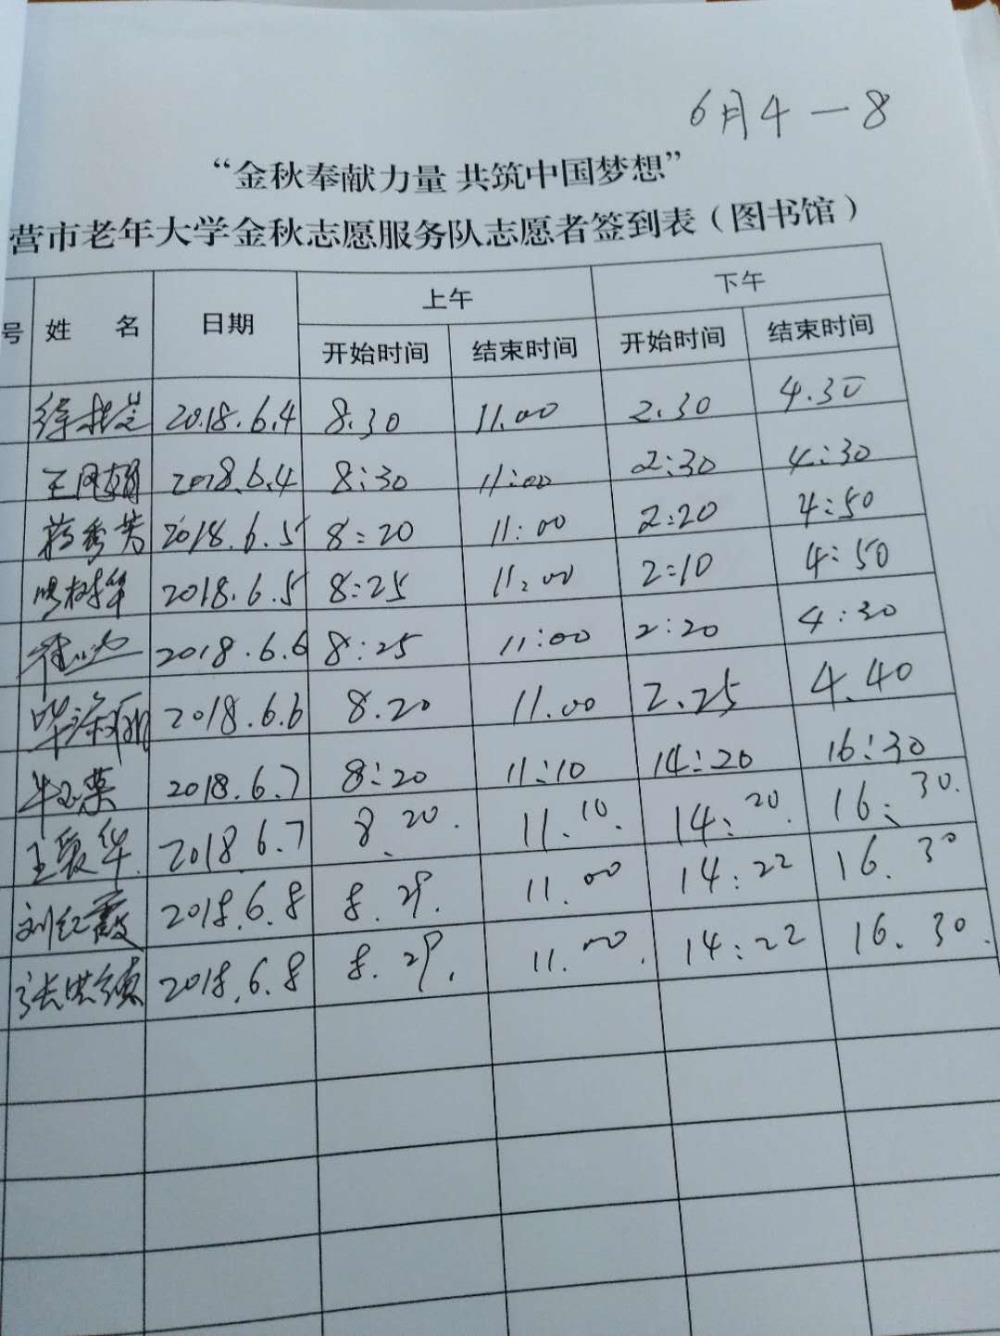 6月4—8
“金秋奉献力量 共筑中国梦想”
营市老年大学金秋志愿服务队志愿者签到表（图书馆）
号 姓 名 日期 上午 下午
开始时间 结束时间 开始时间 结束时间
2018.6.4 8.30 11.00 2.30 4.30
2018.6.4 8:30 11:00 2:30 4:30
蒋秀芳 2018.6.5 8:20 11:00 2:20 4:50
2018.6.5 8:25 11:00 2:10 4:50
2018.6.6 8:25 11:00 2:20 4:30
2018.6.6 8.20 11.00 2.25 4.40
2018.6.7 8:20 11:10 14:20 16:30
王爱华 2018.6.7 8.20. 11.10. 14:20. 16:30.
刘红霞 2018.6.8 8.29. 11.00 14:22 16.30
2018.6.8 8.29. 11.00. 14:22 16.30.